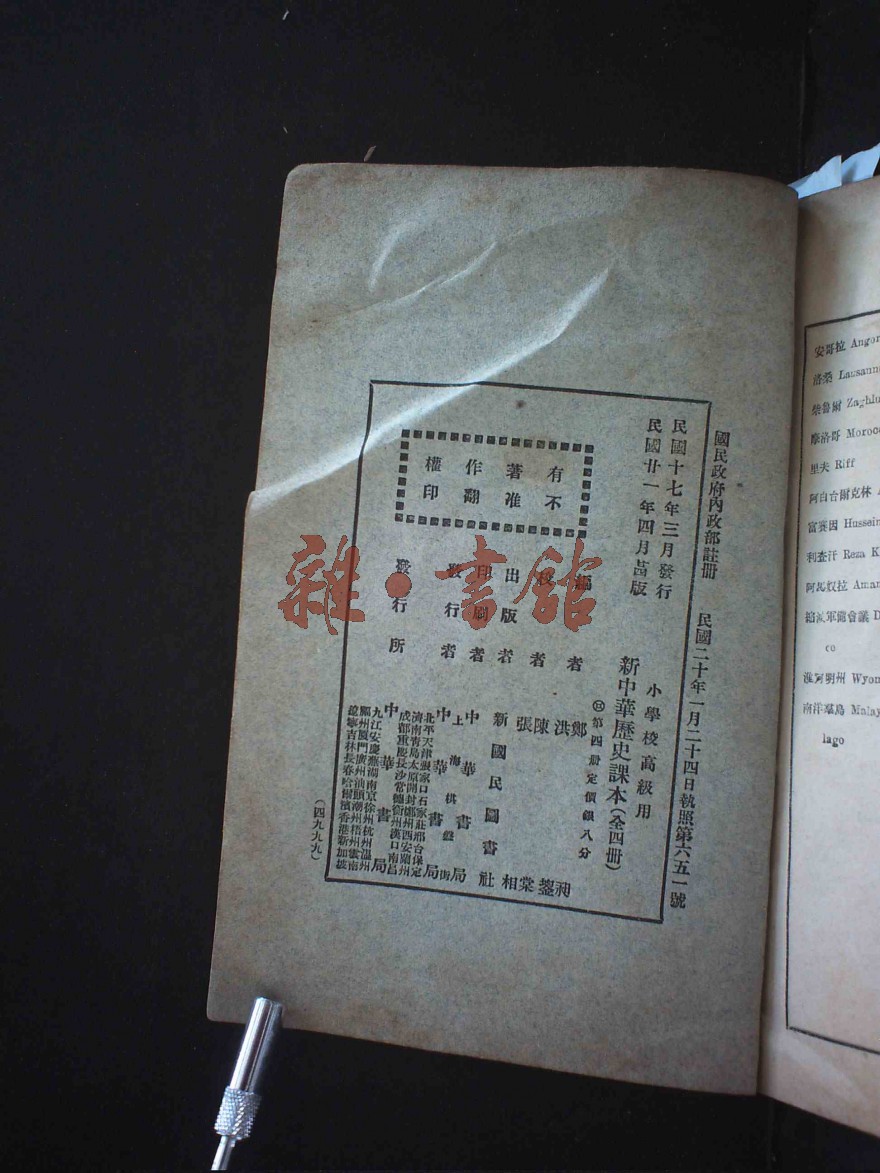 國民政府內政部註册　民國二十年一月二十四日執照第六五一號
民國十七年三月發行
民國廿一年四月　版
小學校高級用
新中華歷史課本(全四册)
第四册定價銀八分
有著作權
不准翻印
編者
校者　鄭昶　洪鋆　陳棠　張相
出版者　新國民圖書社
印刷者　中華書局
發行者　上海　棋盤街　中華書局
發行所　中華書局
北平天津張家口石家莊邢台保定
濟南青島太原開封鄭州西安蘭州
成都重慶長沙常德衡州漢口南昌
九江安慶蕪湖南京徐州杭州溫州
福州廈門廣州汕頭潮州梧州雲南
遼寧吉林長春哈爾濱香港新加坡
(四九九九)
雜·書館
安哥拉 Angor
洛桑 Lausann
柴魯爾 Zaghlu
摩洛哥 Moroc
里夫 Riff
阿白台爾克林 A
富賽因 Hussein
利査汗 Reza K
阿馬奴拉 Aman
縮減軍備會議 D
co
淮阿明州 Wyom
南洋羣島 Malay
lago